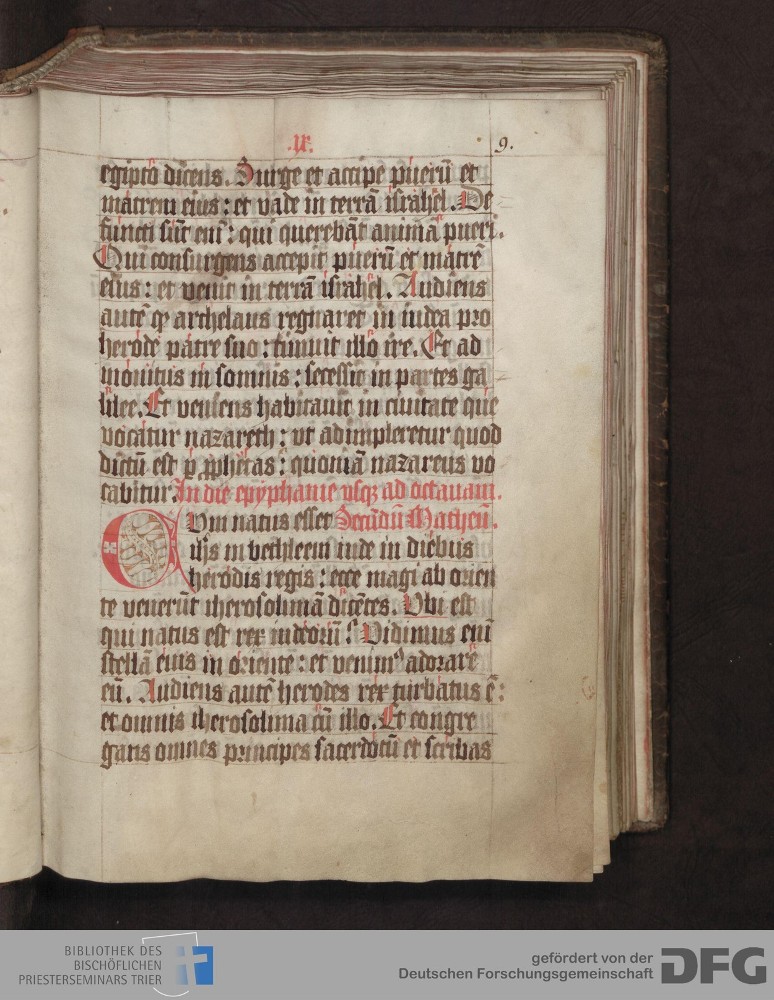 .ix. 9.
egipto dicens. Surge et accipe puerū et
matrem eius : et vade in terrā israhel. De
functi sūt enī : qui querebāt animā pueri.
Qui consurgens accepit puerū et matrē
eius : et venit in terrā israhel. Audiens
autē qꝫ archelaus regnaret in iudea pro
herode patre suo : timuit illo ire. Et ad
monitus in somnis : secessit in partes ga
lilee. Et veniens habitauit in ciuitate que
vocatur nazareth : vt adimpleretur quod
dictū est ꝑ ꝓphetas : quoniā nazareus vo
cabitur. In die epyphanie vsqꝫ ad octauam.
Cum natus esset Secūdū Matheū.
ihs in bethleem iude in diebus
herodis regis : ecce magi ab orien
te venerūt iherosolimā dicētes. Vbi est
qui natus est rex iudeorū? Vidimus enī
stellā eius in oriente : et venimꝰ adorare
eū. Audiens autē herodes rex turbatus ē :
et omnis iherosolima cū illo. Et congre
gans omnes principes sacerdotū et scribas
BIBLIOTHEK DES
BISCHÖFLICHEN
PRIESTERSEMINARS TRIER
gefördert von der
Deutschen Forschungsgemeinschaft DFG